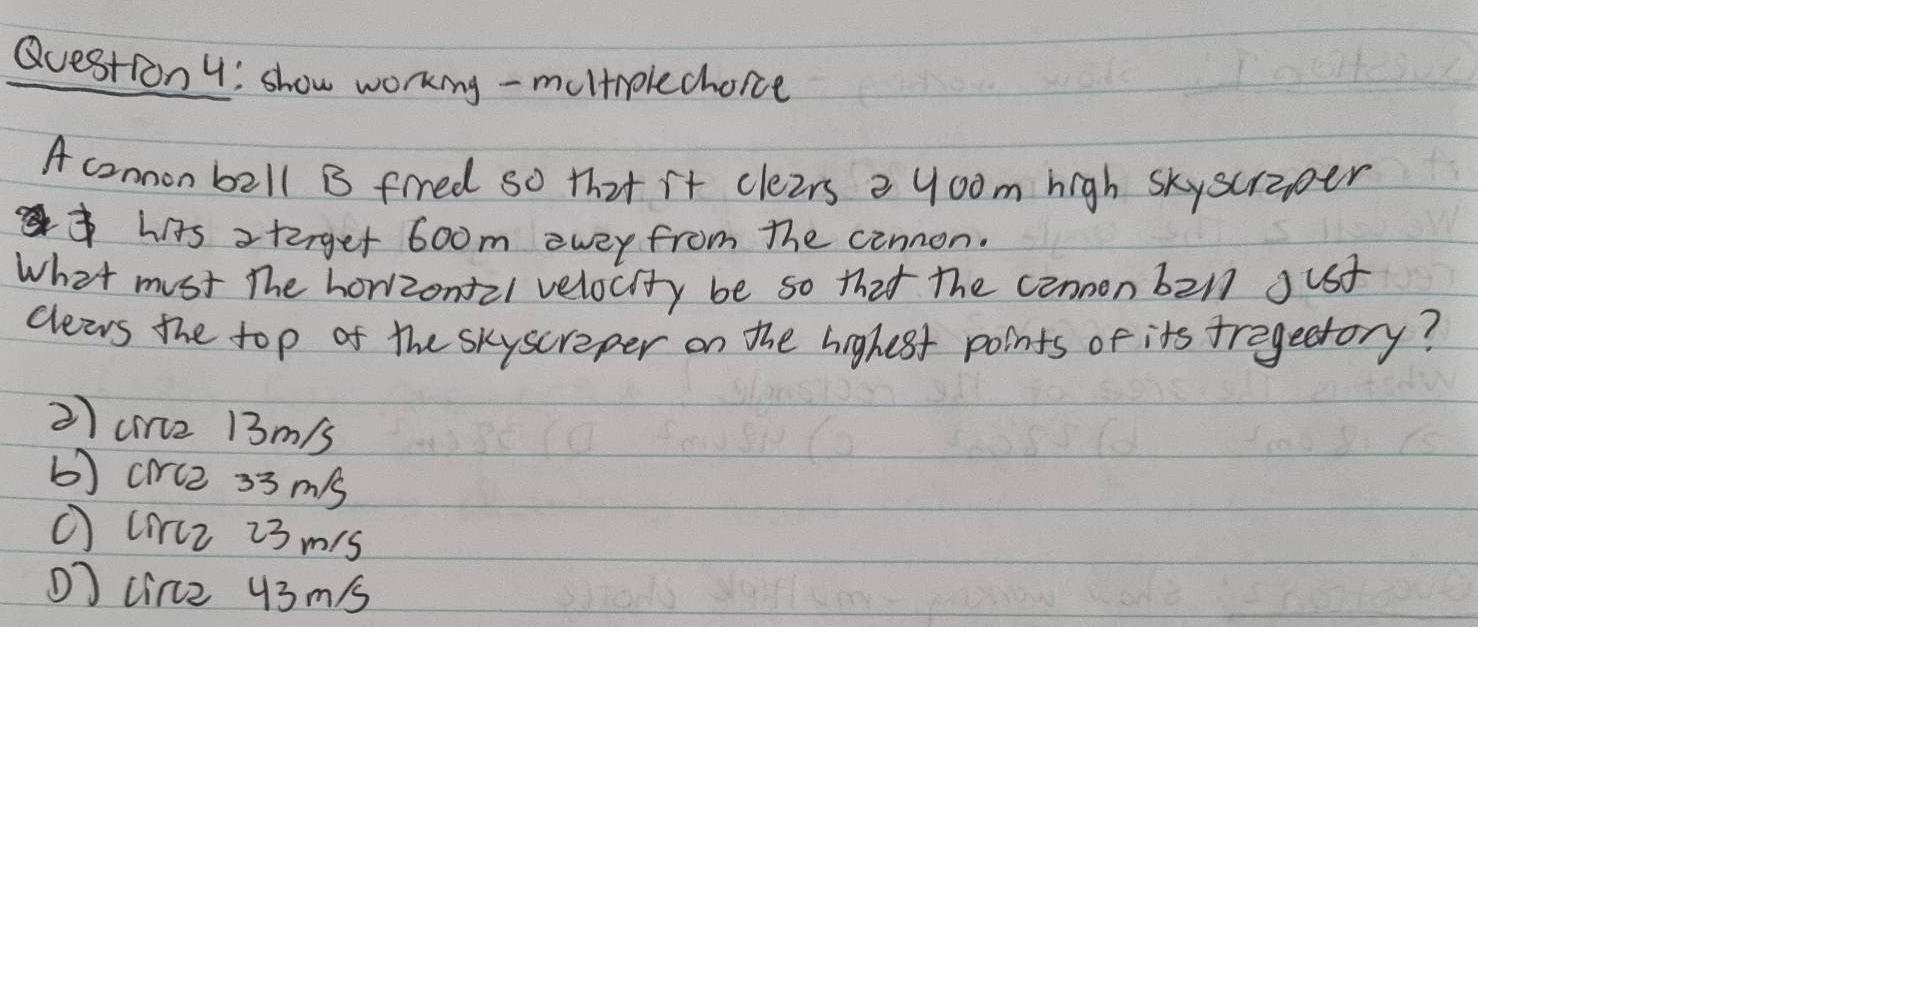 Question 4: show working - multiple choice
A cannon ball is fired so that it clears a 400m high skyscraper
& hits a target 600m away from the cannon.
What must the horizontal velocity be so that the cannon ball just
clears the top of the skyscraper on the highest points of its tragectory?
a) circa 13m/s
b) circa 33 m/s
c) circa 23 m/s
D) circa 43 m/s